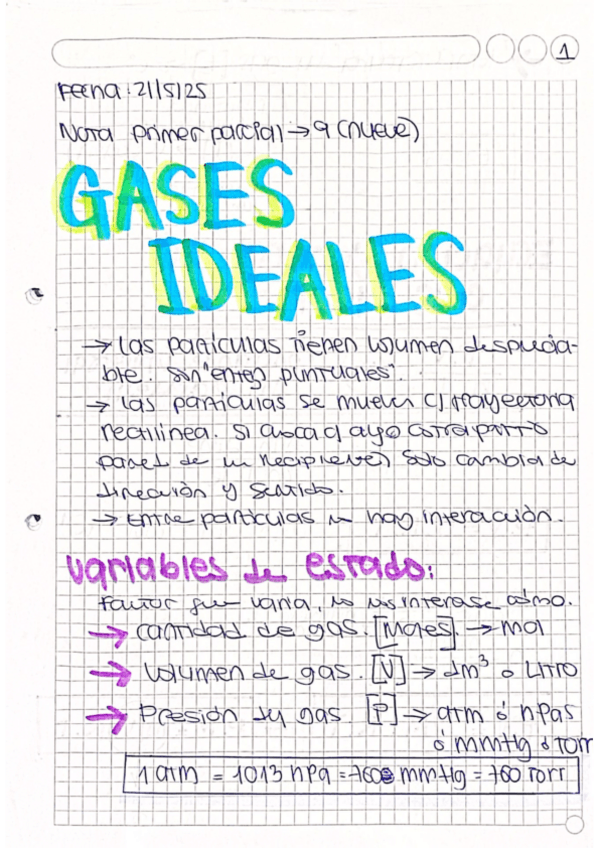 1
Fecha: 21/5/25
Nota primer parcial → 9 (nueve)
GASES
IDEALES
→ Las partículas tienen volumen desprecia-
ble. Son "entes puntuales".
→ Las partículas se mueven c/ trayectoria
rectilínea. Si choca c/ algo (otra part o
pared de un recipiente) solo cambia de
dirección y sentido.
→ Entre partículas no hay interacción.
Variables de estado:
Factor que varía, no nos interesa cómo.
→ Cantidad de gas. [Moles]. → mol
→ Volumen de gas. [V] → dm³ o LITRO
→ Presión del gas. [P] → atm ó hPas
ó mmHg ó Torr
1 atm = 1013 hPa = 760 mmHg = 760 Torr